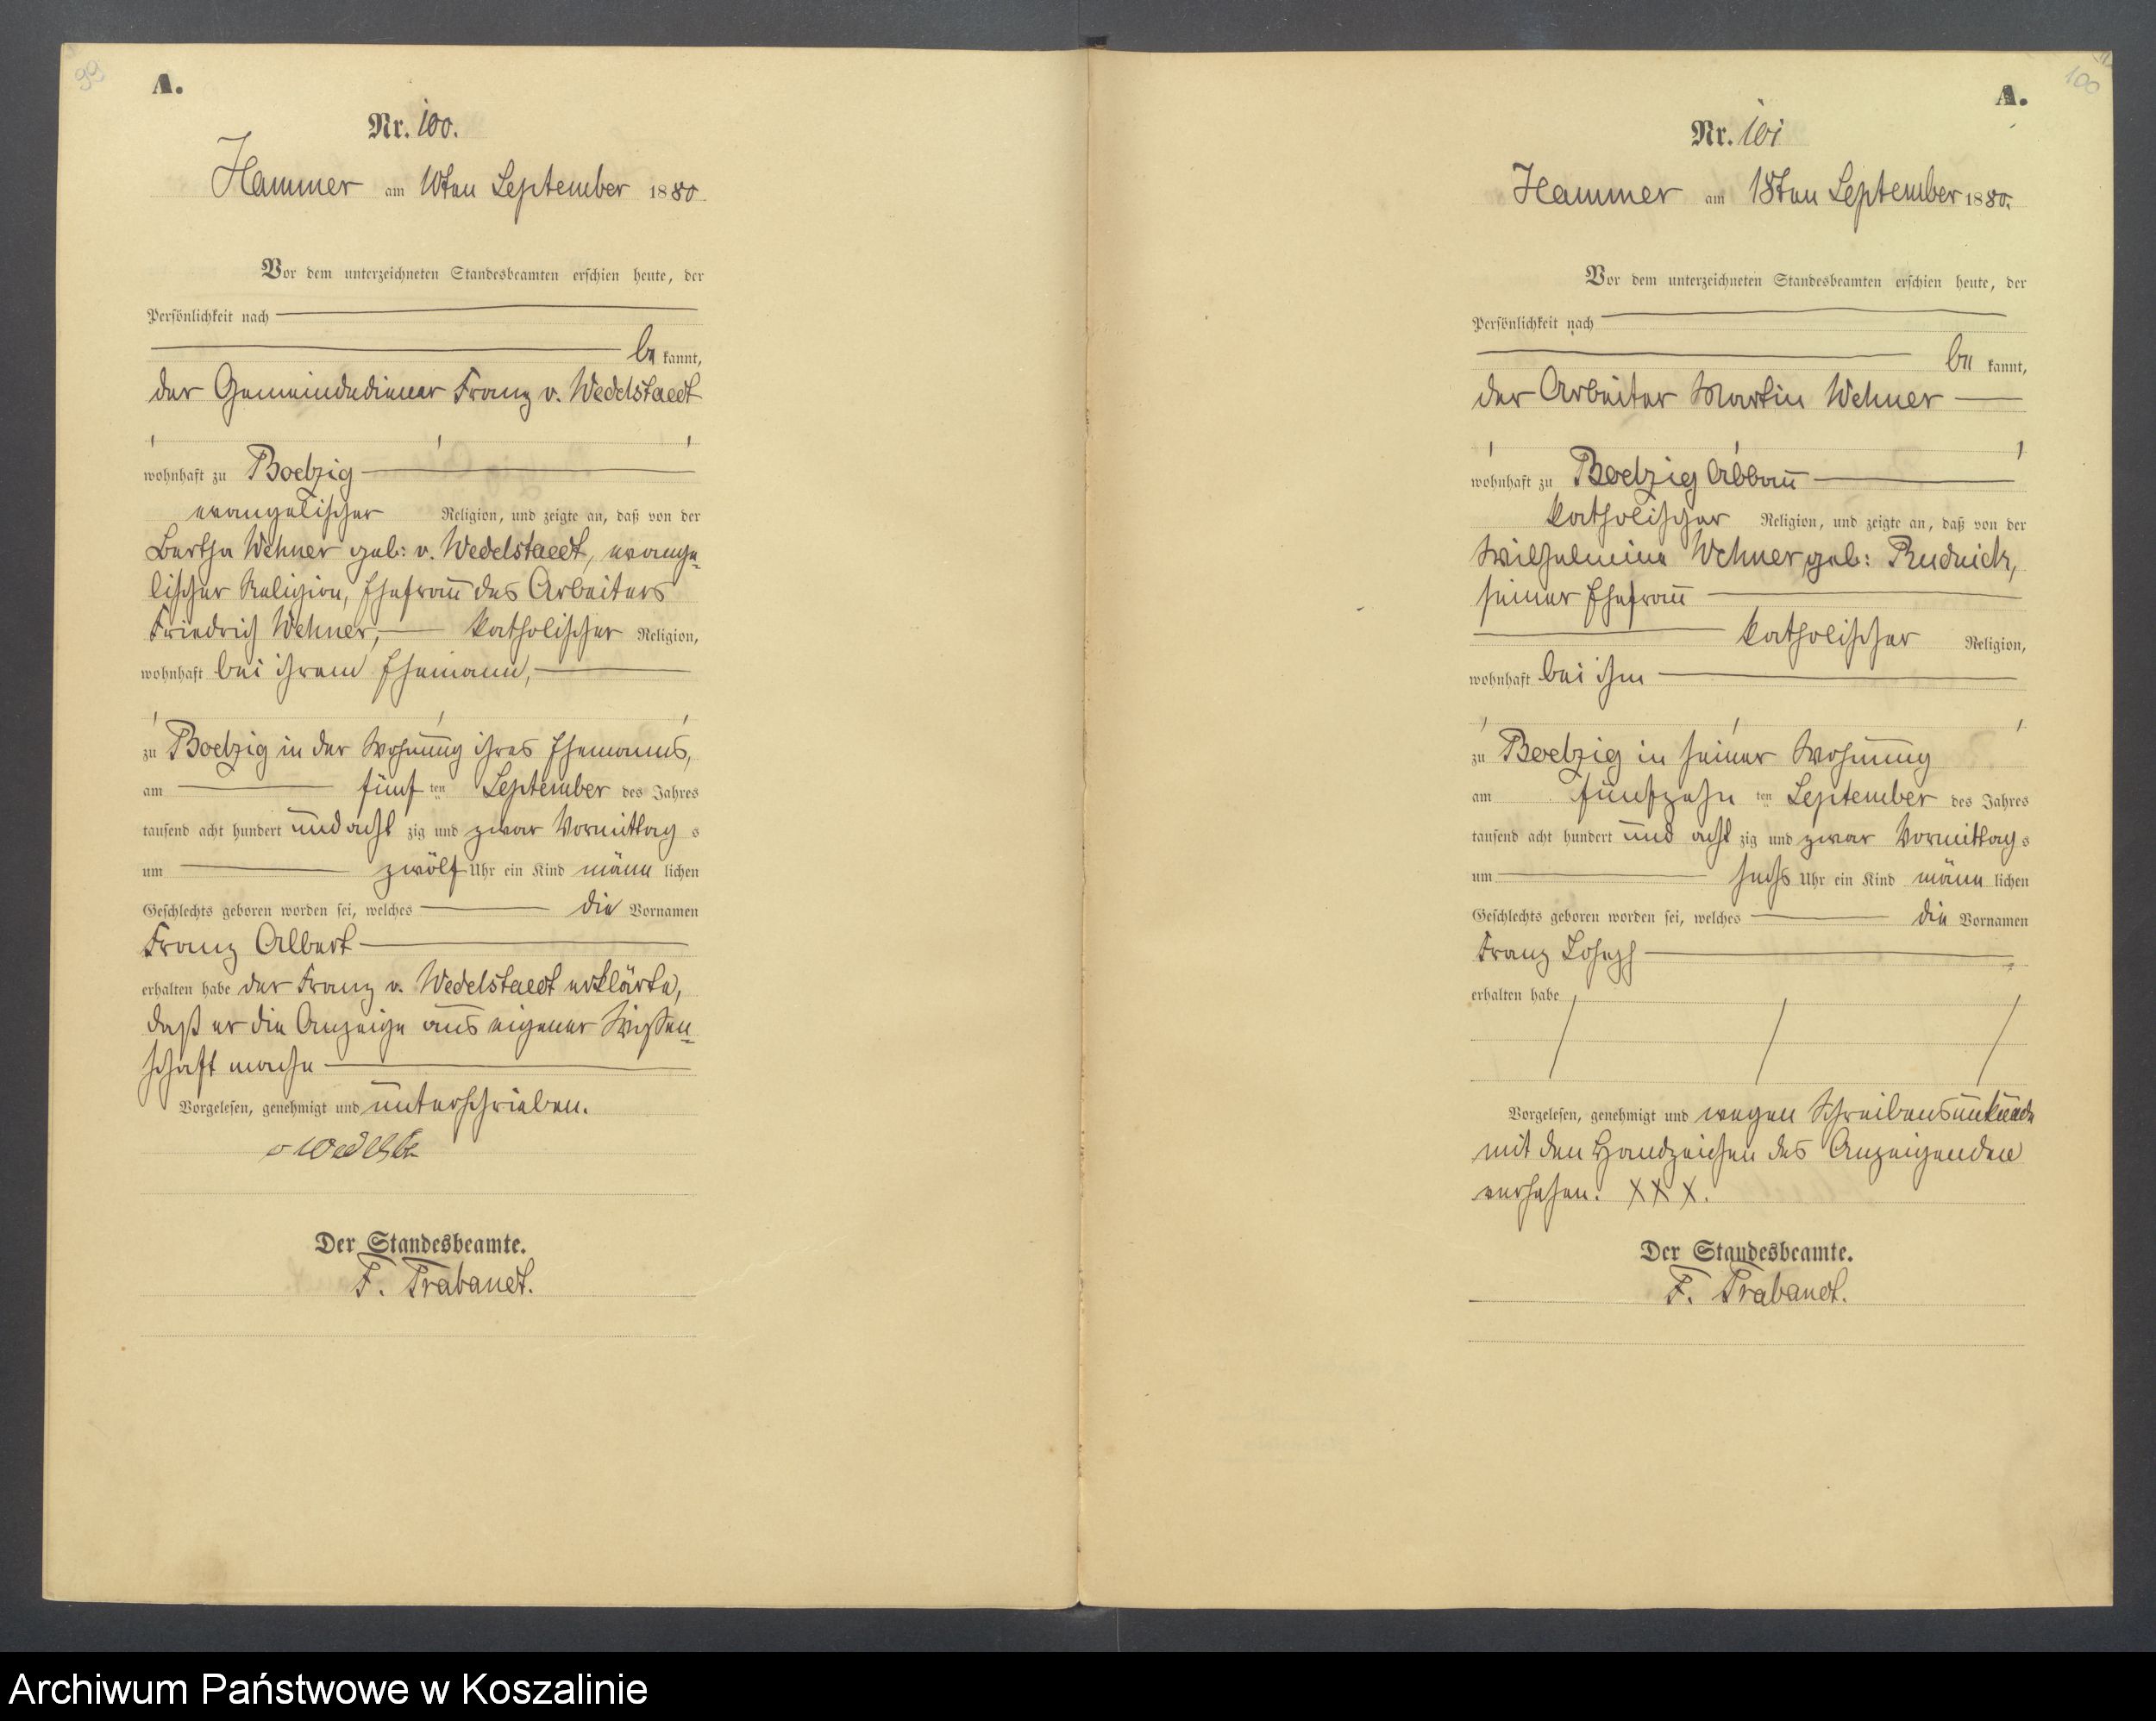 99
A.
Nr. 100.
Hammer am 10ten September 1880
Vor dem unterzeichneten Standesbeamten erschien heute, der
Persönlichkeit nach
be kannt,
der Gemeindediener Franz v. Wedelstaedt
wohnhaft zu Boelzig
evangelischer Religion, und zeigte an, daß von der
Bertha Wehner geb: v. Wedelstaedt, evange-
lischer Religion, Ehefrau des Arbeiters
Friedrich Wehner, katholischer Religion,
wohnhaft bei ihrem Ehemann,
zu Boelzig in der Wohnung ihres Ehemanns,
am fünf ten September des Jahres
tausend acht hundert und acht zig und zwar Vormittag s
um zwölf Uhr ein Kind männ lichen
Geschlechts geboren worden sei, welches die Vornamen
Franz Albert
erhalten habe der Franz v. Wedelstaedt erklärte,
daß er die Anzeige aus eigener Wissen-
schaft mache
Vorgelesen, genehmigt und unterschrieben.
v Wedelst
Der Standesbeamte.
F. Trabandt.
100
A.
Nr. 101
Hammer am 18ten September 1880.
Vor dem unterzeichneten Standesbeamten erschien heute, der
Persönlichkeit nach
be kannt,
der Arbeiter Martin Wehner
wohnhaft zu Boelzig Abbau
katholischer Religion, und zeigte an, daß von der
Wilhelmine Wehner geb: Rudnick,
seiner Ehefrau
katholischer Religion,
wohnhaft bei ihm
zu Boelzig in seiner Wohnung
am fünfzehn ten September des Jahres
tausend acht hundert und acht zig und zwar Vormittag s
um sechs Uhr ein Kind männ lichen
Geschlechts geboren worden sei, welches die Vornamen
Franz Joseph
erhalten habe
Vorgelesen, genehmigt und wegen Schreibensunkunde
mit den Handzeichen des Anzeigenden
versehen. X X X.
Der Standesbeamte.
F. Trabandt.
Archiwum Państwowe w Koszalinie